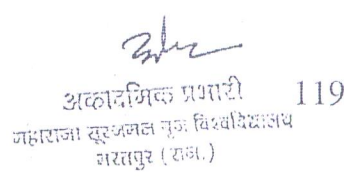 अकादमिक प्रभारी 119
महाराजा सूरजमल बृज विश्वविद्यालय
भरतपुर (राज.)